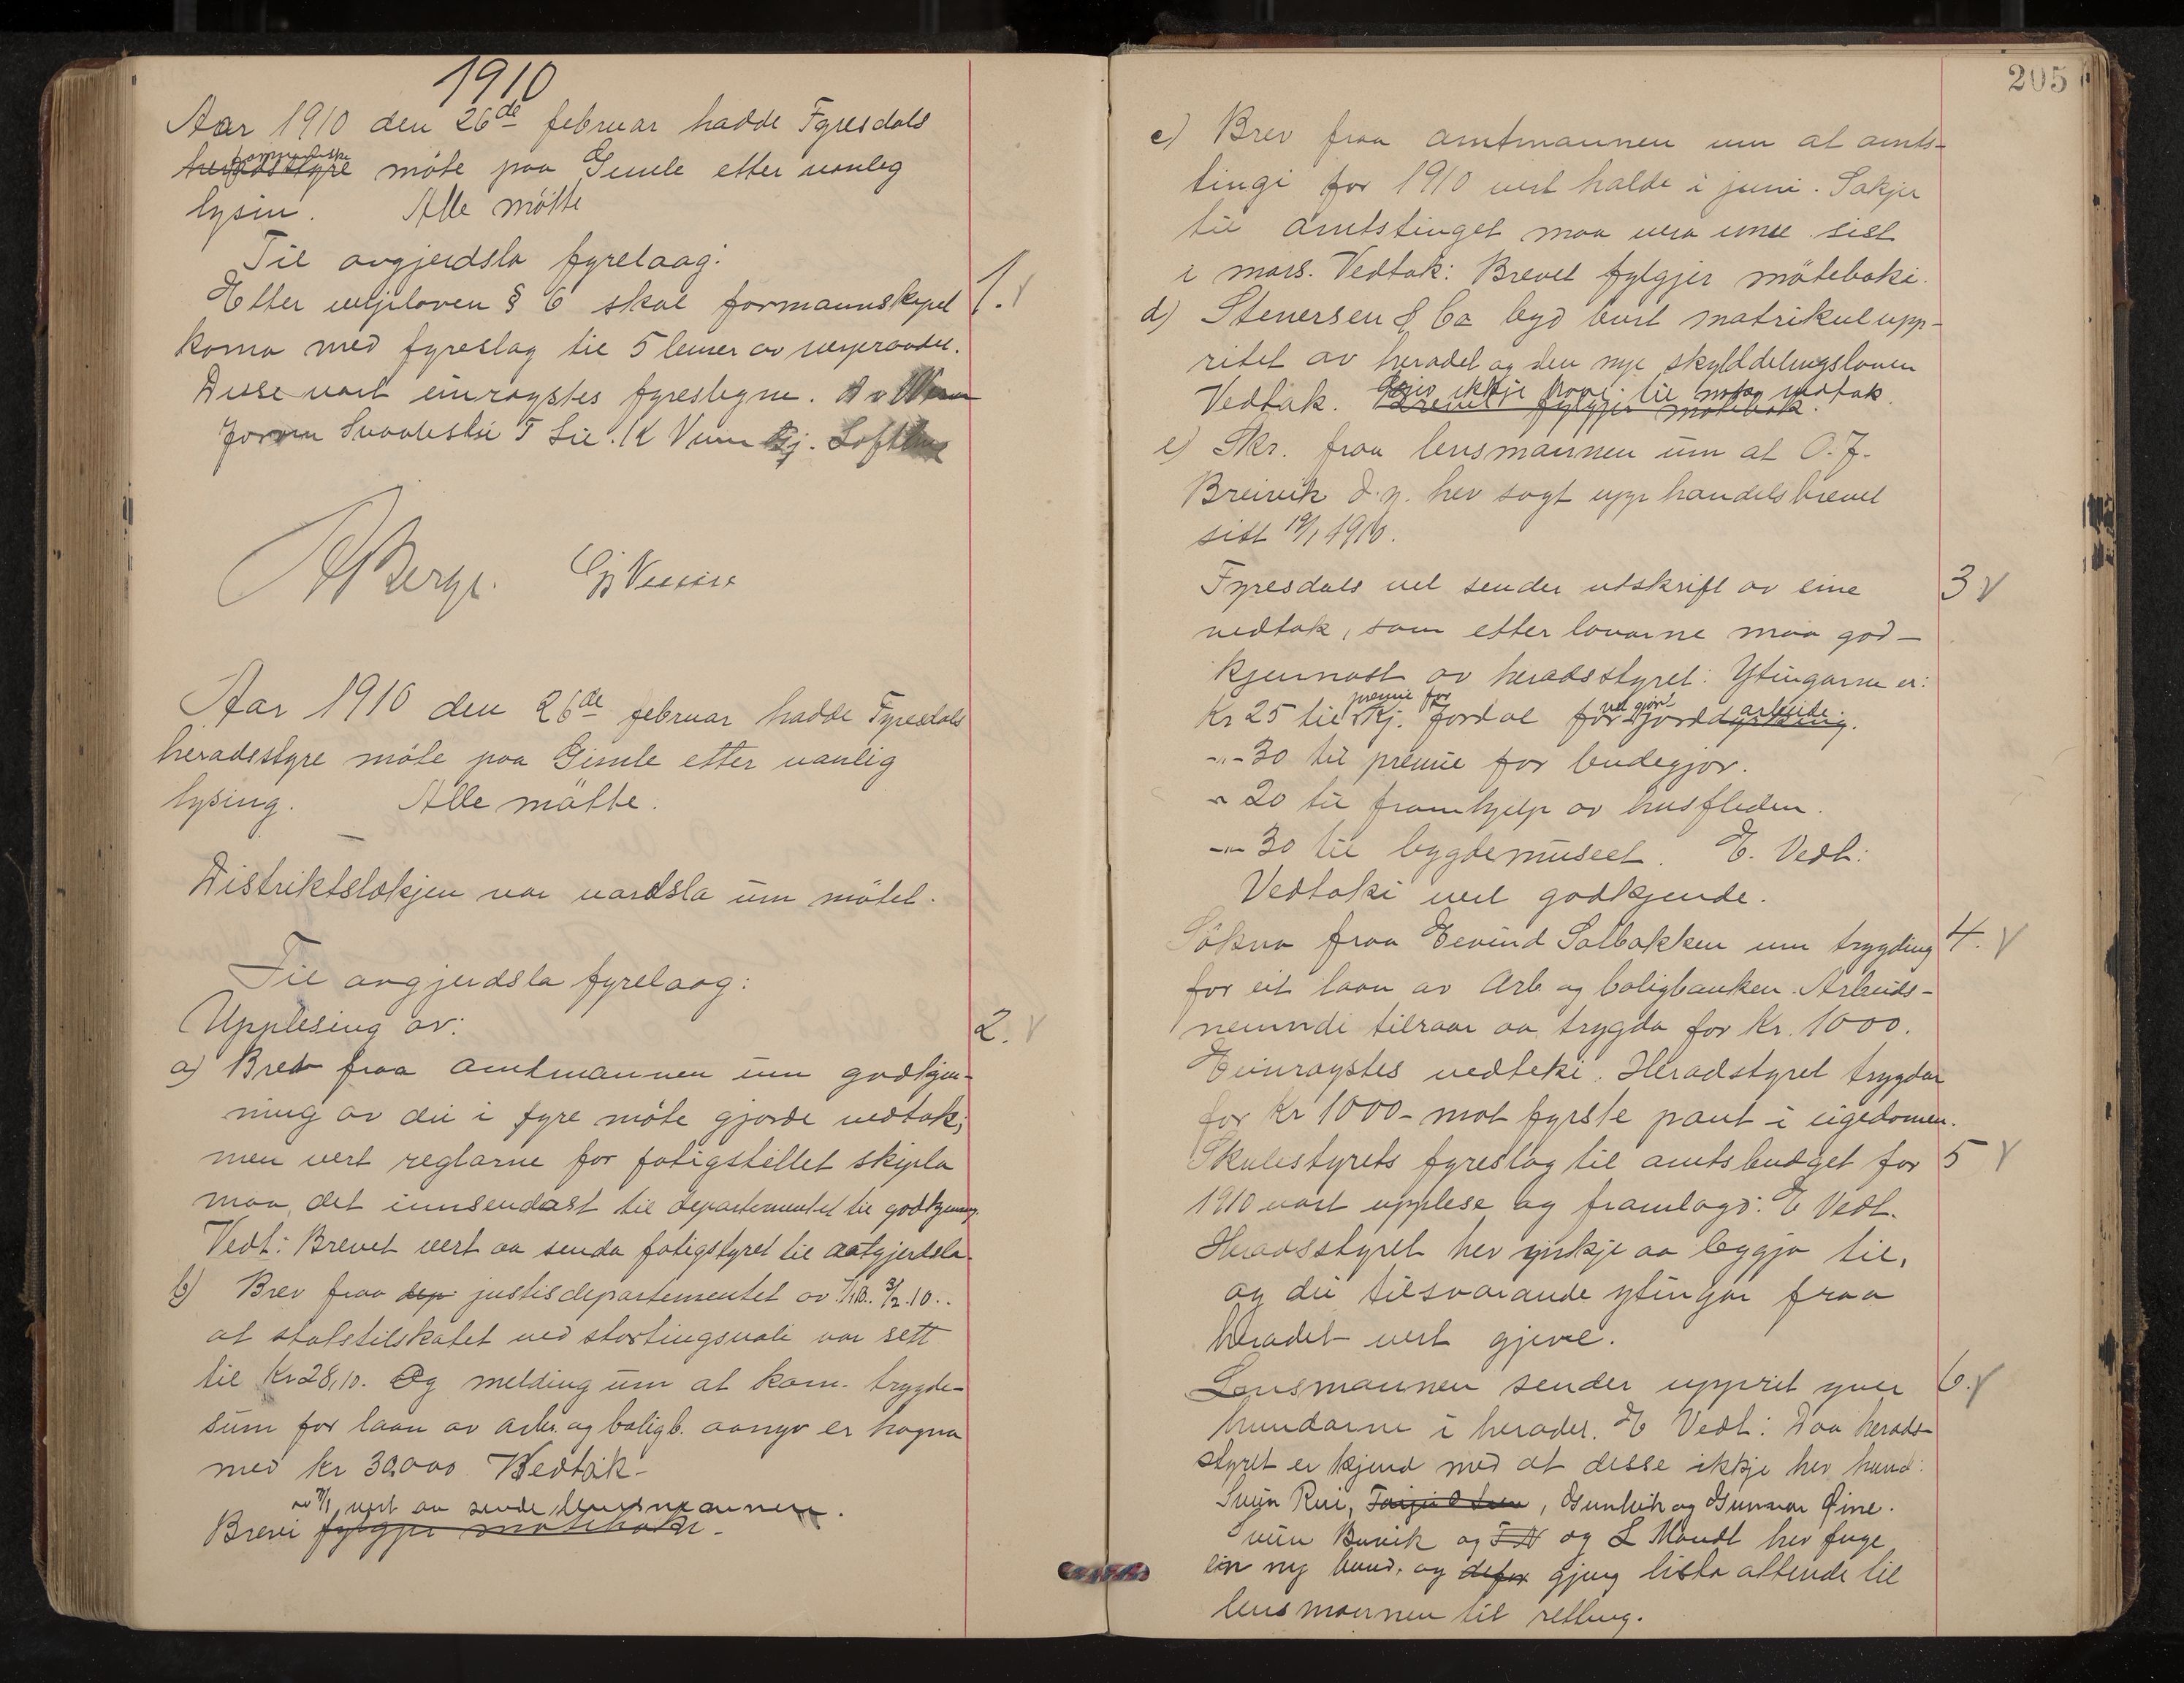 1910
Aar 1910 den 26de februar hadde Fyresdals
formandska
heradsstyre möte paa Gimle etter vanleg
lysin. Alle mötte
Til avgjerdsla fyrelaag:
Etter veljeloven § 6 skal formannskapet 1.
koma med fyreslag til 5 lemer av
Disse vart einrøystes fyreslegne.
K Veum Gj. Lofthus
Berge. Gj Veum
Aar 1910 den 26de februar hadde Fyresdals
heradsstyre möte paa Gimle etter vanlig
lysing. Alle mötte.
Distriktslækjen var vardsla um mötet.
Til avgjerdsla fyrelaag:
Upplesing av: 2.
a) Brev fraa amtmannen um godkjen-
ning av dei i fyre möte gjorde vedtak;
men vert reglarne for fatigstellet skipla
maa det innsendast til departementet til godkjenning.
Vedt: Brevet vert aa senda fatigstyret til aatgjerdsla.
b) Brev fraa dep justisdepartementet av 7/1 10. 3/2.10..
at statstilskotet ved stortingsvali var sett
til Kr 28,10. Og melding um at kom. trygde-
sum for laan av arb. og boligb. aangr er hogna
med kr 30,000 Vedtak-
av 7/1, vert aa sende lensmannen.
Brevi fylgjer möteboki-
205
c) Brev fraa amtmannen um at amts-
tingi for 1910 vert halde i juni. Sakjer
til amtstinget maa vera inne sist
i mars. Vedtak: Brevet fylgjer möteboki.
d) Stenersen & Co byd burt matrikulupp-
ritet av heradet og den nye skylddelingsloven
Vedtak. Gjev ikkje rom til noko vedtak
Brevet fylgjer mötebok.
e) Skr. fraa lensmannen um at O. J.
Breivik d. y. hev sagt upp handelsbrevet
sitt 19/1 1910.
Fyresdals vel sender utskrift av eine 3
vedtak, som etter lovarne maa god-
kjennast av heradsstyret: Ytingarne er:
premie for vel gjort arbeide
Kr 25 til skj. fordal for jorddyrkning.
-"- 30 til premie for budegjør.
" 20 til framhjelp av husfliden.
-"- 30 til bygdemuseet. E. Vedt:
Vedtaki vert godkjende.
Sökna fraa Eevind Solbakken um trygding 4.
for eit laan av Arb og boligbanken. Arbeids-
nemndi tilraar aa trygda for Kr. 1000.
Einrøystes vedteke. Heradstyret trygdar
for Kr 1000- mot fyrste pant i eigedomen.
Skulestyrets fyreslag til amtsbudget for 5
1910 vart upplese og framlagd: E Vedt.
Heradsstyret hev ynkje aa leggja til,
og dei tilsvarande ytingar fraa
heradet vert gjeve.
Lensmannen sender upprit yver 6.
hundarne i herader. E Vedt: Daa herads-
styret er kjend med at desse ikkje hev hund:
Svein Rui, , Gunleik og Gunnar Øine.
Buvik og og L Mandt hev fuge
ein ny hund, og gjeng lista attende til
lensmannen til retting.